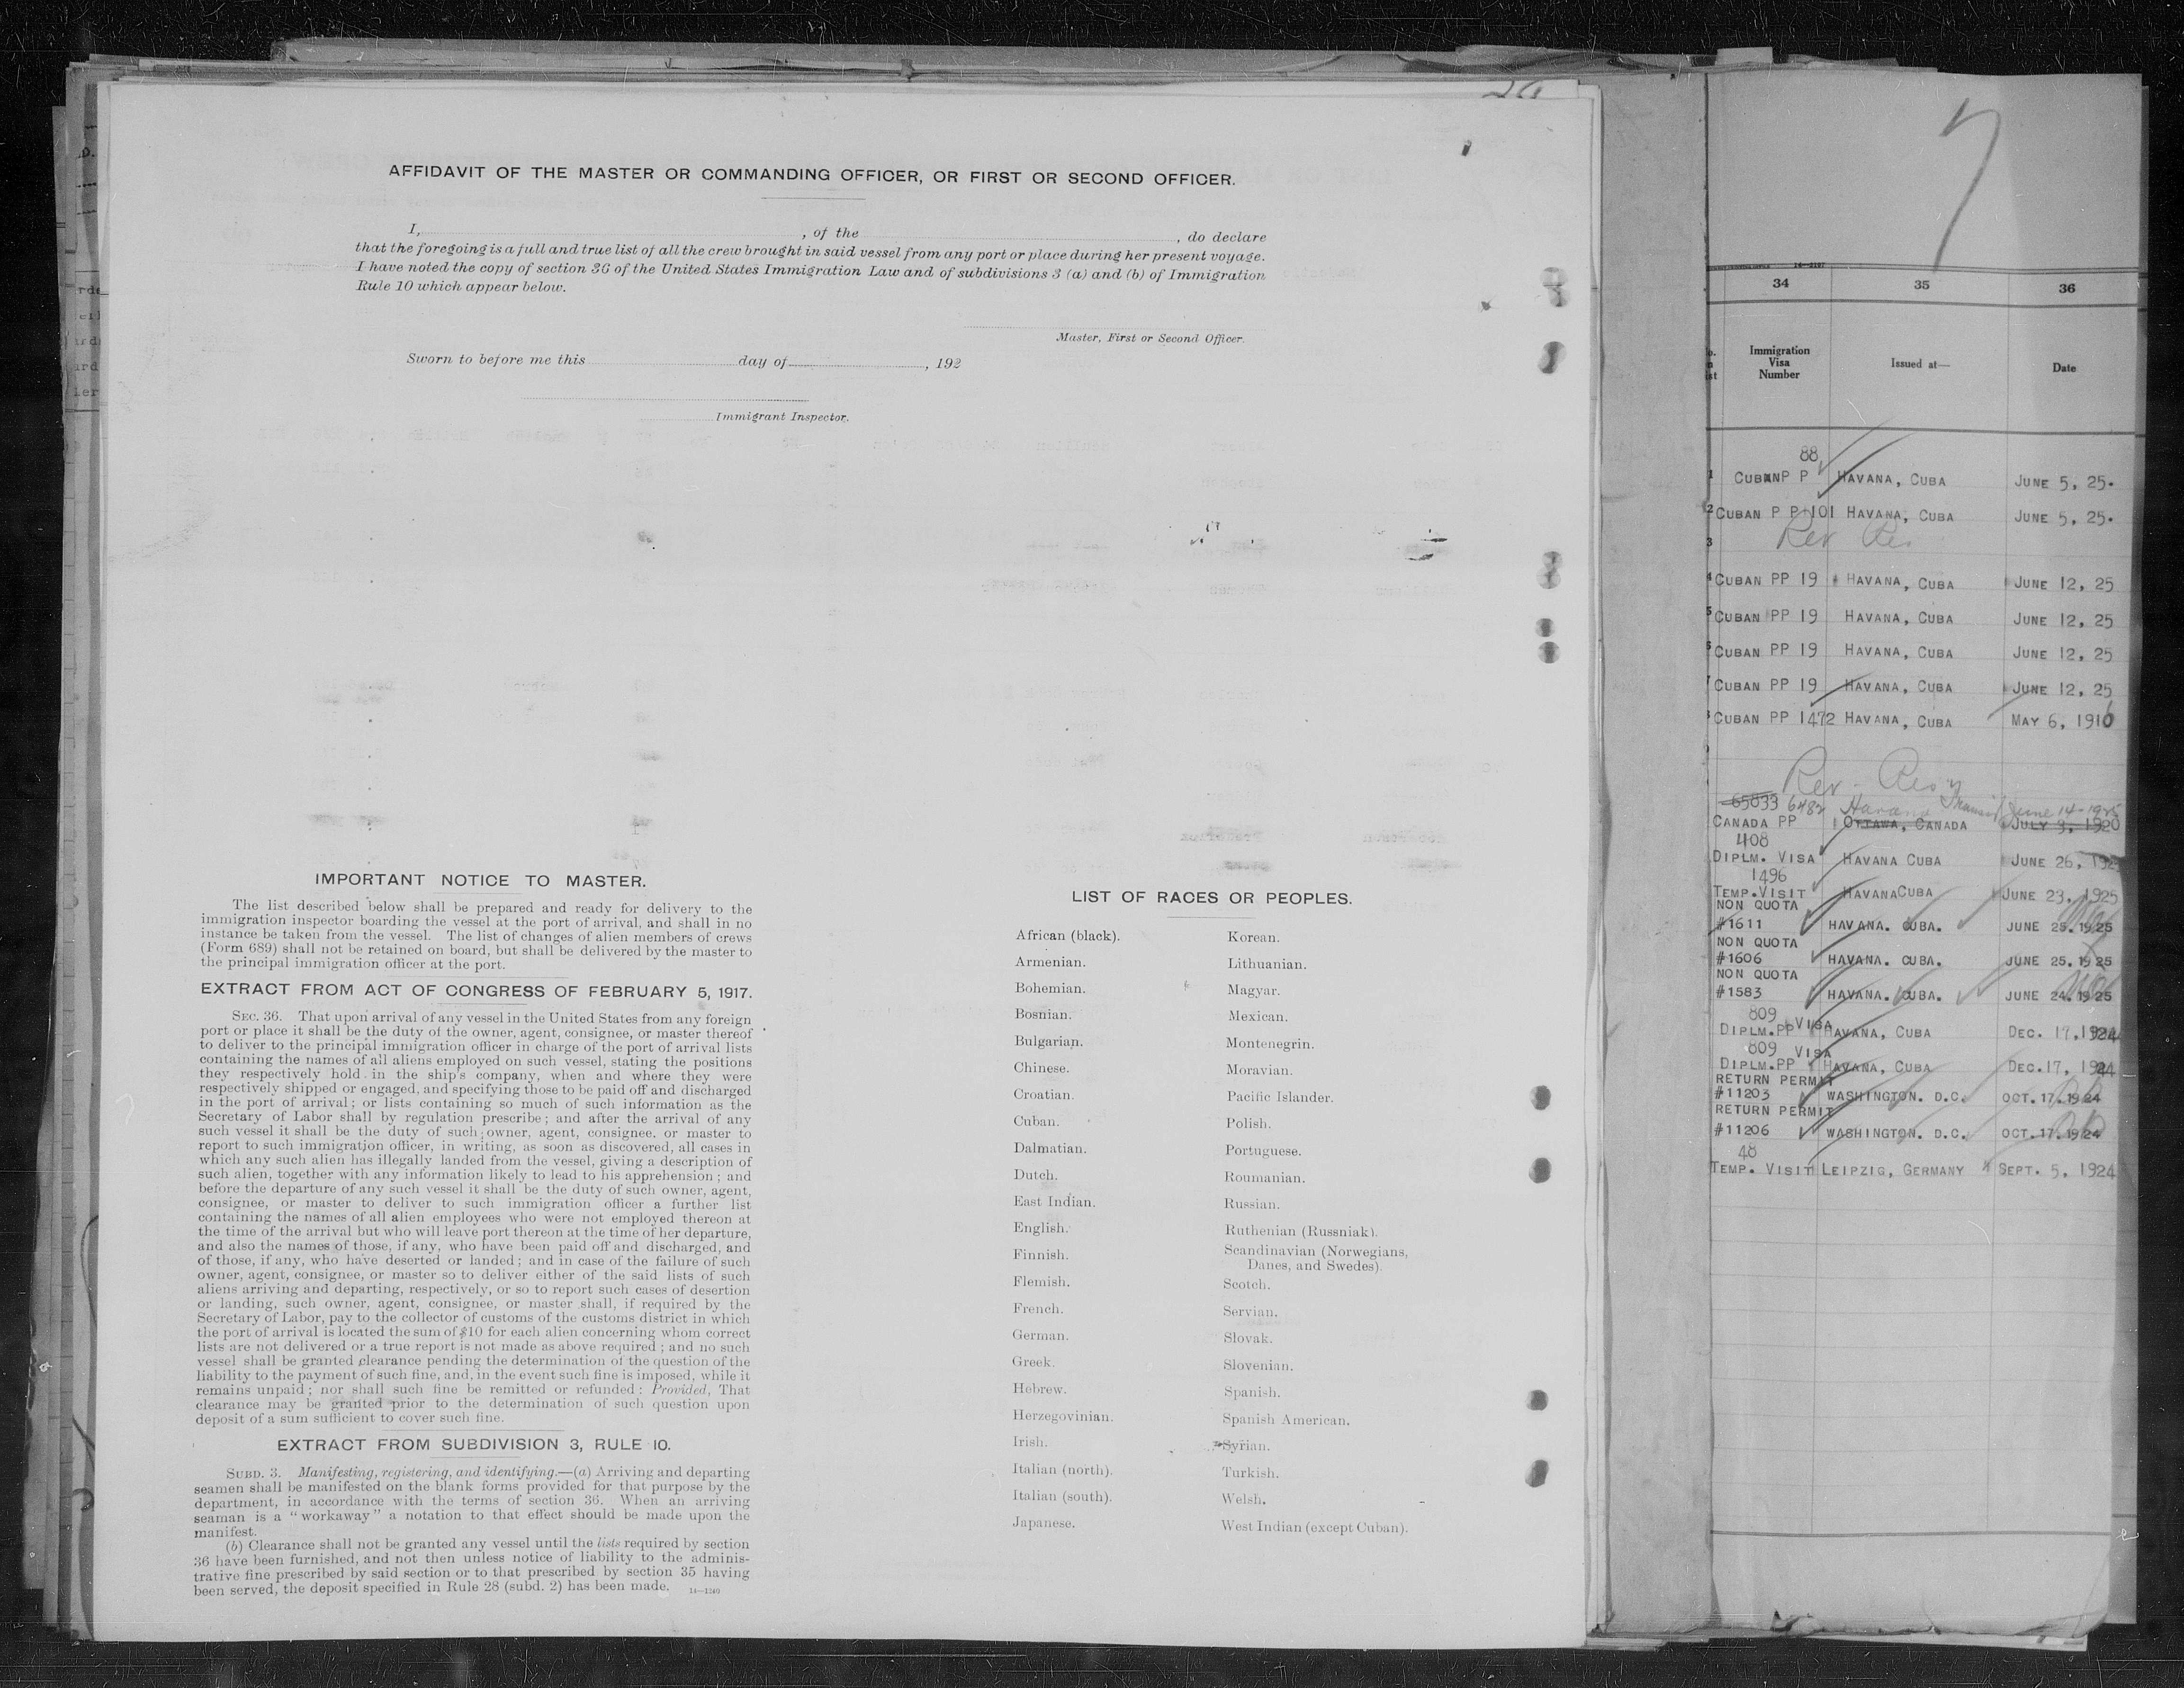 AFFIDAVIT OF THE MASTER OR COMMANDING OFFICER, OR FIRST OR SECOND OFFICER.
I, , of the , do declare
that the foregoing is a full and true list of all the crew brought in said vessel from any port or place during her present voyage.
I have noted the copy of section 36 of the United States Immigration Law and of subdivisions 3 (a) and (b) of Immigration
Rule 10 which appear below.
Master, First or Second Officer.
Sworn to before me this day of , 192
Immigrant Inspector.
IMPORTANT NOTICE TO MASTER.
The list described below shall be prepared and ready for delivery to the
immigration inspector boarding the vessel at the port of arrival, and shall in no
instance be taken from the vessel. The list of changes of alien members of crews
(Form 689) shall not be retained on board, but shall be delivered by the master to
the principal immigration officer at the port.
EXTRACT FROM ACT OF CONGRESS OF FEBRUARY 5, 1917.
SEC. 36. That upon arrival of any vessel in the United States from any foreign
port or place it shall be the duty of the owner, agent, consignee, or master thereof
to deliver to the principal immigration officer in charge of the port of arrival lists
containing the names of all aliens employed on such vessel, stating the positions
they respectively hold in the ship's company, when and where they were
respectively shipped or engaged, and specifying those to be paid off and discharged
in the port of arrival; or lists containing so much of such information as the
Secretary of Labor shall by regulation prescribe; and after the arrival of any
such vessel it shall be the duty of such owner, agent, consignee. or master to
report to such immigration officer, in writing, as soon as discovered, all cases in
which any such alien has illegally landed from the vessel, giving a description of
such alien, together with any information likely to lead to his apprehension; and
before the departure of any such vessel it shall be the duty of such owner, agent,
consignee, or master to deliver to such immigration officer a further list
containing the names of all alien employees who were not employed thereon at
the time of the arrival but who will leave port thereon at the time of her departure,
and also the names of those, if any, who have been paid off and discharged, and
of those, if any, who have deserted or landed; and in case of the failure of such
owner, agent, consignee, or master so to deliver either of the said lists of such
aliens arriving and departing, respectively, or so to report such cases of desertion
or landing, such owner, agent, consignee, or master shall, if required by the
Secretary of Labor, pay to the collector of customs of the customs district in which
the port of arrival is located the sum of $10 for each alien concerning whom correct
lists are not delivered or a true report is not made as above required; and no such
vessel shall be granted clearance pending the determination of the question of the
liability to the payment of such fine, and, in the event such fine is imposed, while it
remains unpaid; nor shall such fine be remitted or refunded: Provided, That
clearance may be granted prior to the determination of such question upon
deposit of a sum sufficient to cover such fine.
EXTRACT FROM SUBDIVISION 3, RULE 10.
SUBD. 3. Manifesting, registering, and identifying.—(a) Arriving and departing
seamen shall be manifested on the blank forms provided for that purpose by the
department, in accordance with the terms of section 36. When an arriving
seaman is a "workaway" a notation to that effect should be made upon the
manifest.
(b) Clearance shall not be granted any vessel until the lists required by section
36 have been furnished, and not then unless notice of liability to the adminis-
trative fine prescribed by said section or to that prescribed by section 35 having
been served, the deposit specified in Rule 28 (subd. 2) has been made. 14—1240
LIST OF RACES OR PEOPLES.
African (black). Korean.
Armenian. Lithuanian.
Bohemian. Magyar.
Bosnian. Mexican.
Bulgarian. Montenegrin.
Chinese. Moravian.
Croatian. Pacific Islander.
Cuban. Polish.
Dalmatian. Portuguese.
Dutch. Roumanian.
East Indian. Russian.
English. Ruthenian (Russniak).
Finnish. Scandinavian (Norwegians,
Danes, and Swedes).
Flemish. Scotch.
French. Servian.
German. Slovak.
Greek. Slovenian.
Hebrew. Spanish.
Herzegovinian. Spanish American.
Irish. Syrian.
Italian (north). Turkish.
Italian (south). Welsh.
Japanese. West Indian (except Cuban).
7
34 35 36
Immigration
Visa
Number
Issued at—
Date
88
1 CUBAN P P HAVANA, CUBA JUNE 5, 25.
2 CUBAN P P 101 HAVANA, CUBA JUNE 5, 25.
3 Rev Res
4 CUBAN PP 19 HAVANA, CUBA JUNE 12, 25
5 CUBAN PP 19 HAVANA, CUBA JUNE 12, 25
6 CUBAN PP 19 HAVANA, CUBA JUNE 12, 25
7 CUBAN PP 19 HAVANA, CUBA JUNE 12, 25
CUBAN PP 1472 HAVANA, CUBA MAY 6, 1916
65033 6482 Havana Transit June 14-1925
CANADA PP OTTAWA, CANADA JULY 3, 1920
408
DIPLM. VISA HAVANA CUBA JUNE 26, 1925
1496
TEMP.VISIT HAVANA CUBA JUNE 23, 1925
NON QUOTA
#1611 HAVANA. CUBA. JUNE 25.1925
NON QUOTA
#1606 HAVANA. CUBA. JUNE 25.1925
NON QUOTA
#1583 HAVANA. CUBA. JUNE 24.1925
809 VISA
DIPLM.PP HAVANA, CUBA DEC. 17, 1924
809 VISA
DIPLM.PP HAVANA, CUBA DEC.17, 1924
RETURN PERMIT
#11203 WASHINGTON. D.C. OCT.17.1924
RETURN PERMIT
#11206 WASHINGTON. D.C. OCT.17.1924
48
TEMP. VISIT LEIPZIG, GERMANY SEPT. 5, 1924